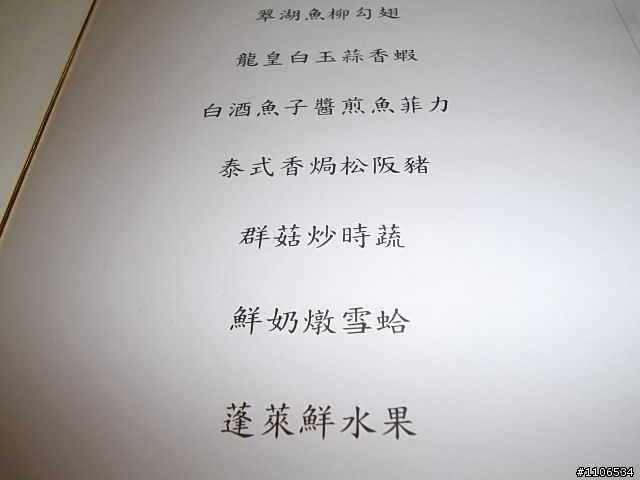 翠湖魚柳勾翅
龍皇白玉蒜香蝦
白酒魚子醬煎魚菲力
泰式香焗松阪豬
群菇炒時蔬
鮮奶燉雪蛤
蓬萊鮮水果
#1106534